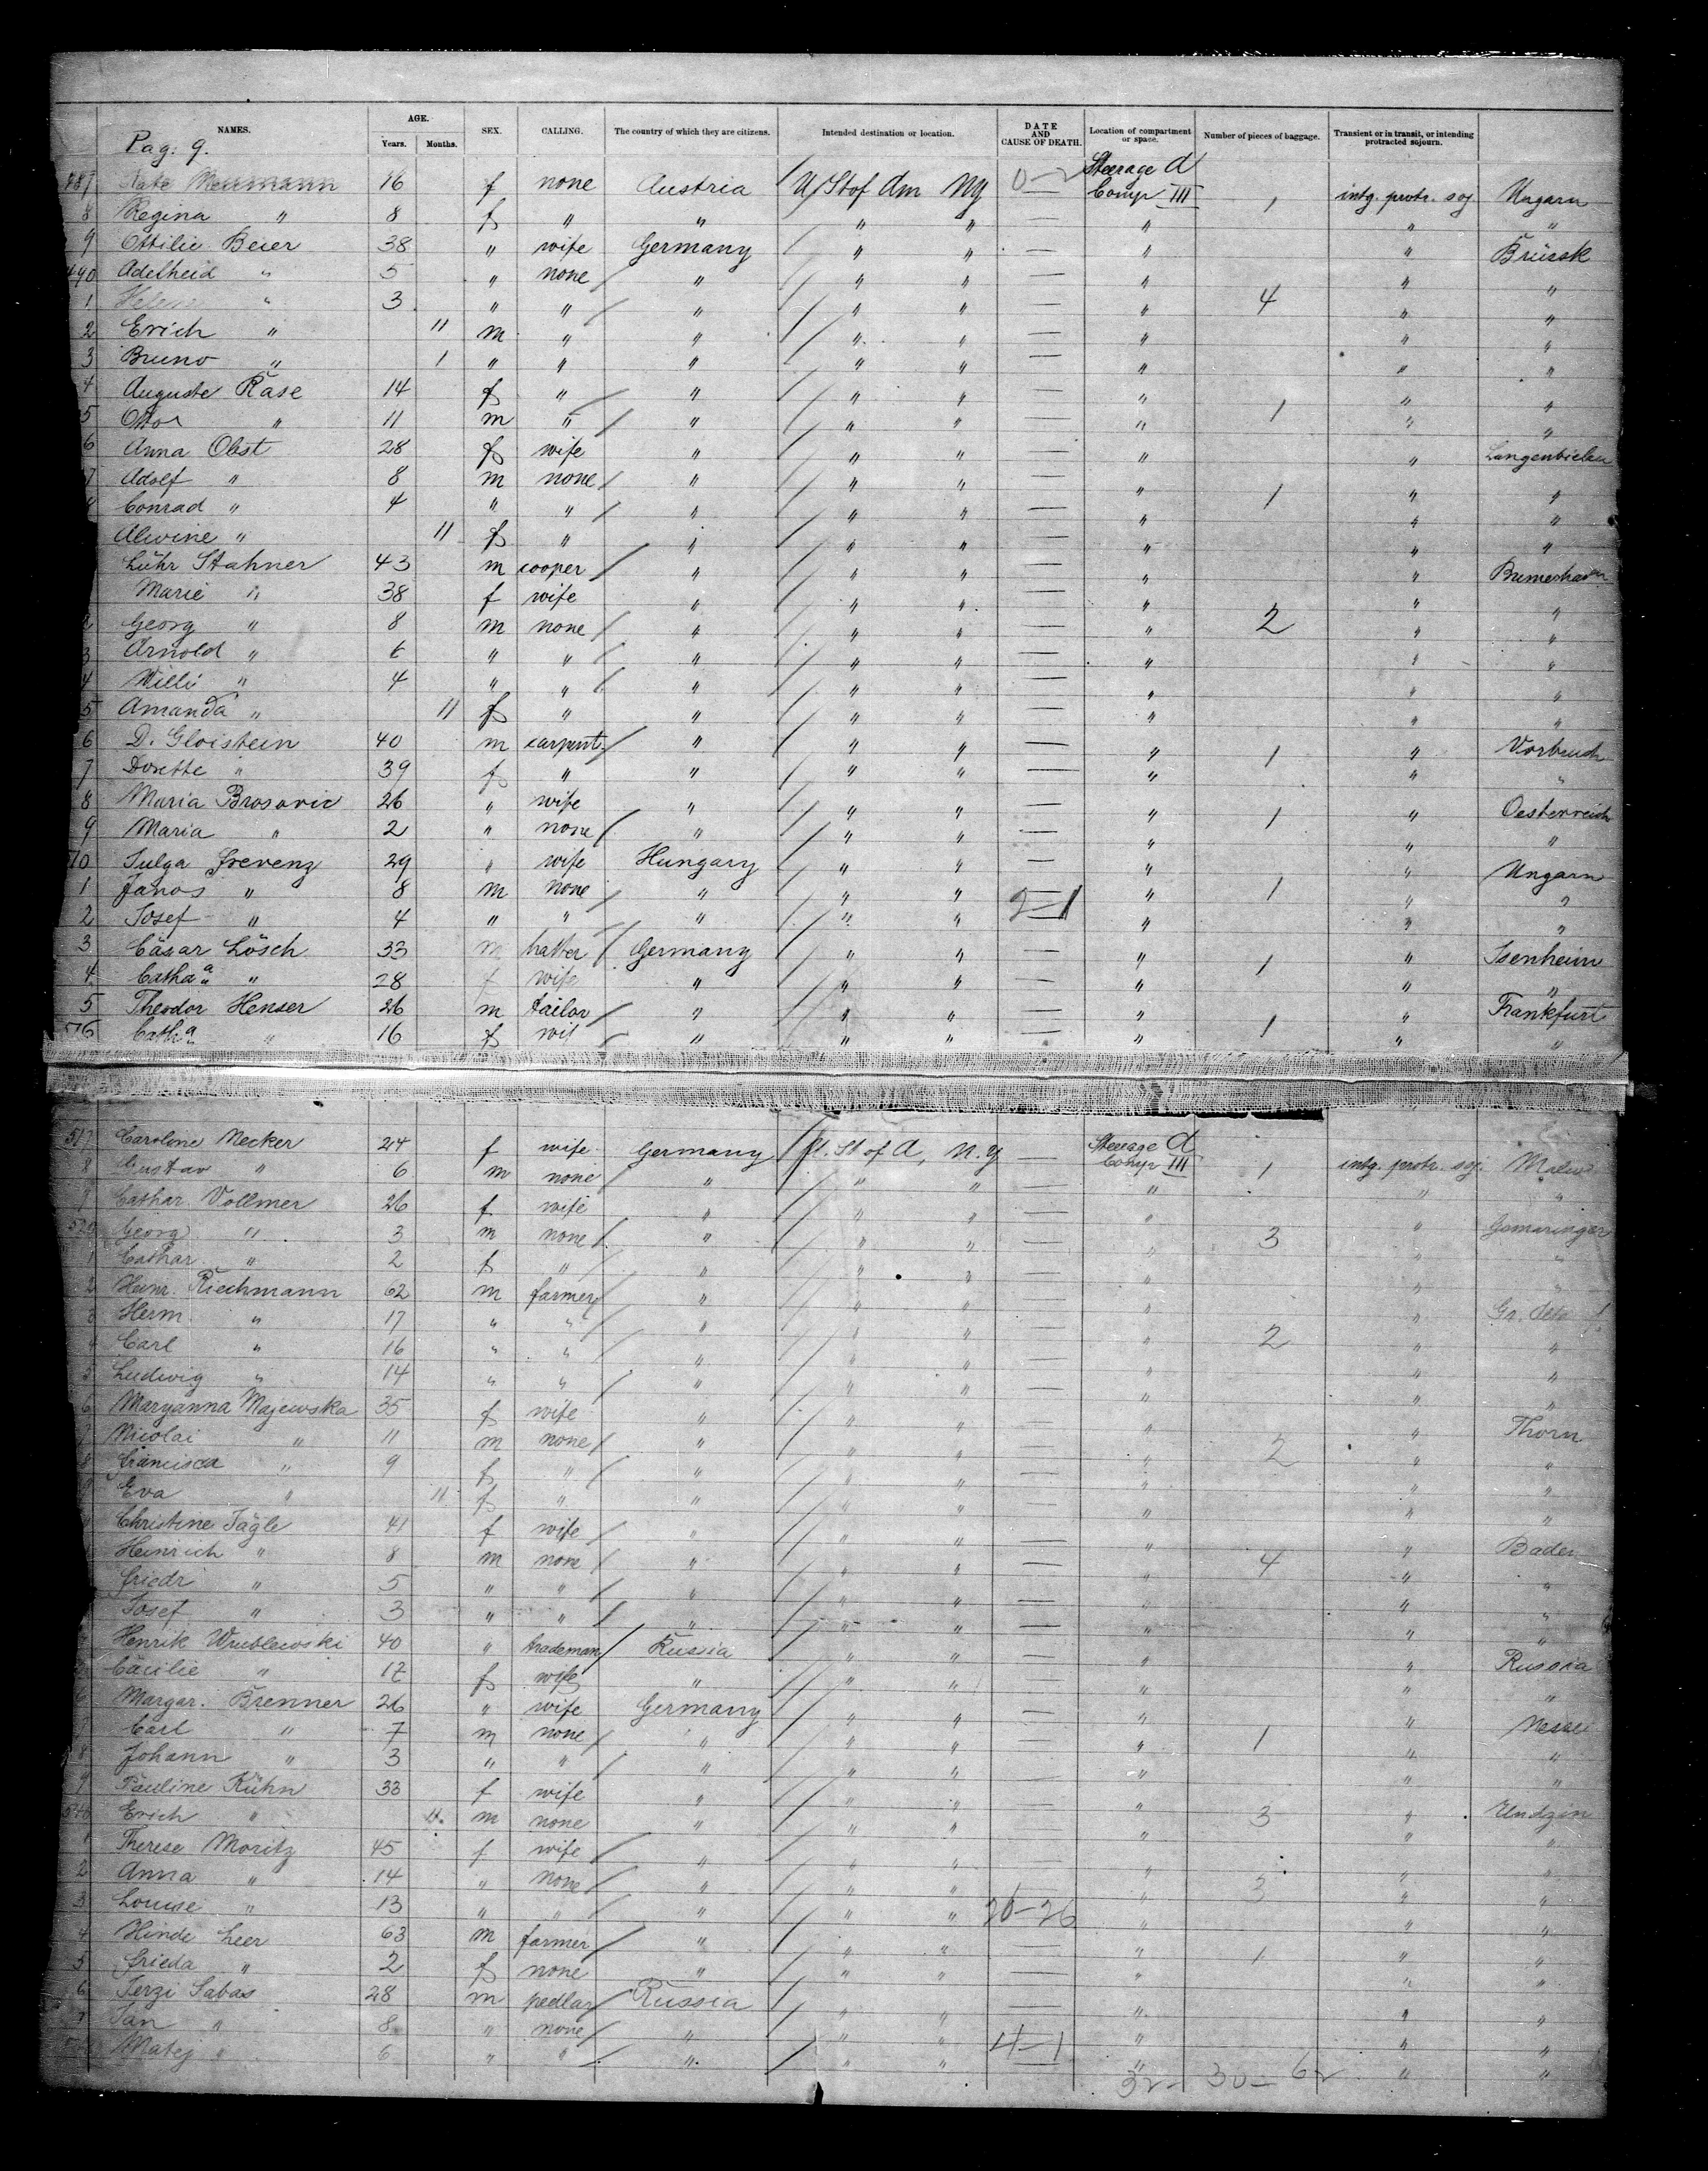 NAMES. AGE. Years. Months. SEX. CALLING. The country of which they are citizens. Intended destination or location. DATE AND CAUSE OF DEATH. Location of compartment or space. Number of pieces of baggage. Transient or in transit, or intending protracted sojourn.
Pag: 9.
487 16 f none Austria U St of Am NY 0-2 Steerage A Comp III 1 intg. protr. soj Ungarn
8 Regina " 8 f " " " " " " "
9 Ottilie Beier 38 " wife Germany " " — " "
490 Adelheid " 5 " none " " " — " " "
1 Helene " 3 " " " " " — " 4 " "
2 Erich " 11 m " " " " — " " "
3 Bruno " 1 " " " " " — " " "
4 Auguste Rase 14 f " " " " — " 1 " "
5 Otto " 11 m " " " " — " " "
6 Anna Obst 28 f wife " " " — " " Langenbielau
7 Adolf " 8 m none " " " — " 1 " "
Conrad " 4 " " " " " — " " "
Alwine " 11 f " " " " — " " "
Lühr Stahner 43 m cooper " " " — " " Bremerhaven
Marie " 38 f wife " " " — " " "
2 Georg " 8 m none " " " — " 2 " "
3 Arnold " 6 " " " " " — " " "
4 Willi " 4 " " " " " — " " "
5 Amanda " 11 f " " " " — " " "
6 D. Gloistein 40 m carpent. " " " — " 1 " Vorbruch
7 Dorette " 39 f " " " " — " " "
8 Maria Brosovic 26 " wife " " " — " 1 " Oesterreich
9 Maria " 2 " none " " " — " " "
510 29 " wife Hungary " " — " " Ungarn
1 Janos " 8 m none " " " 2-1 " 1 " "
2 Josef " 4 " " " " " " " "
3 Cäsar Lösch 33 m hatter Germany " " — " 1 " Isenheim
4 Catha " 28 f wife " " " — " " "
5 Theodor Henser 26 m tailor " " " — " 1 " Frankfurt
516 Catha " 16 f " " " — " " "
517 Caroline Necker 24 f wife Germany U. St of A, N.Y — Steerage A Comp III 1 intg. protr. soj.
8 Gustav " 6 m none " " " — " " "
9 Cathar. Vollmer 26 f wife " " " — " " Gomaringen
520 Georg " 3 m none " " " — " 3 " "
1 Cathar " 2 f " " " " — " " "
2 Heinr. Riechmann 62 m farmer " " " — " "
3 Herm " 17 " " " " " — " 2 " "
4 Carl " 16 " " " " " — " " "
5 Ludwig " 14 " " " " " — " " "
6 Maryanna Majewska 35 f wife " " " — " " Thorn
7 Nicolai " 11 m none " " " — " 2 " "
8 Francisca " 9 f " " " " — " " "
9 Eva " 11 f " " " " — " " "
Christine Tägle 41 f wife " " " — " " Baden
Heinrich " 8 m none " " " — " 4 " "
Friedr " 5 " " " " " — " " "
Josef " 3 " " " " " — " " "
Henrik Wrublewski 40 " trademan Russia " " — " " Russia
Cäcilie " 17 f wife " " " — " " "
6 Margar. Brenner 26 " wife Germany " " — " "
Carl " 7 m none " " " — " 1 " "
8 Johann " 3 " " " " " — " " "
9 Pauline Kühn 33 f wife " " " — " "
540 Erich " 11 m none " " " — " 3 " "
1 Therese Moritz 45 f wife " " " — " " "
2 Anna " 14 " none " " " — " 3 " "
3 Louise " 13 " " " " " 26-26 " " "
4 Hinde Leer 63 m farmer " " " — " 1 " "
5 Frieda " 2 f none " " " — " " "
6 Jerzi Sabas 28 m pedlar Russia " " — " " "
7 Jan " 8 " none " " " 4-1 " " "
Matej " 6 " " " " " " " "
32- 30- 62